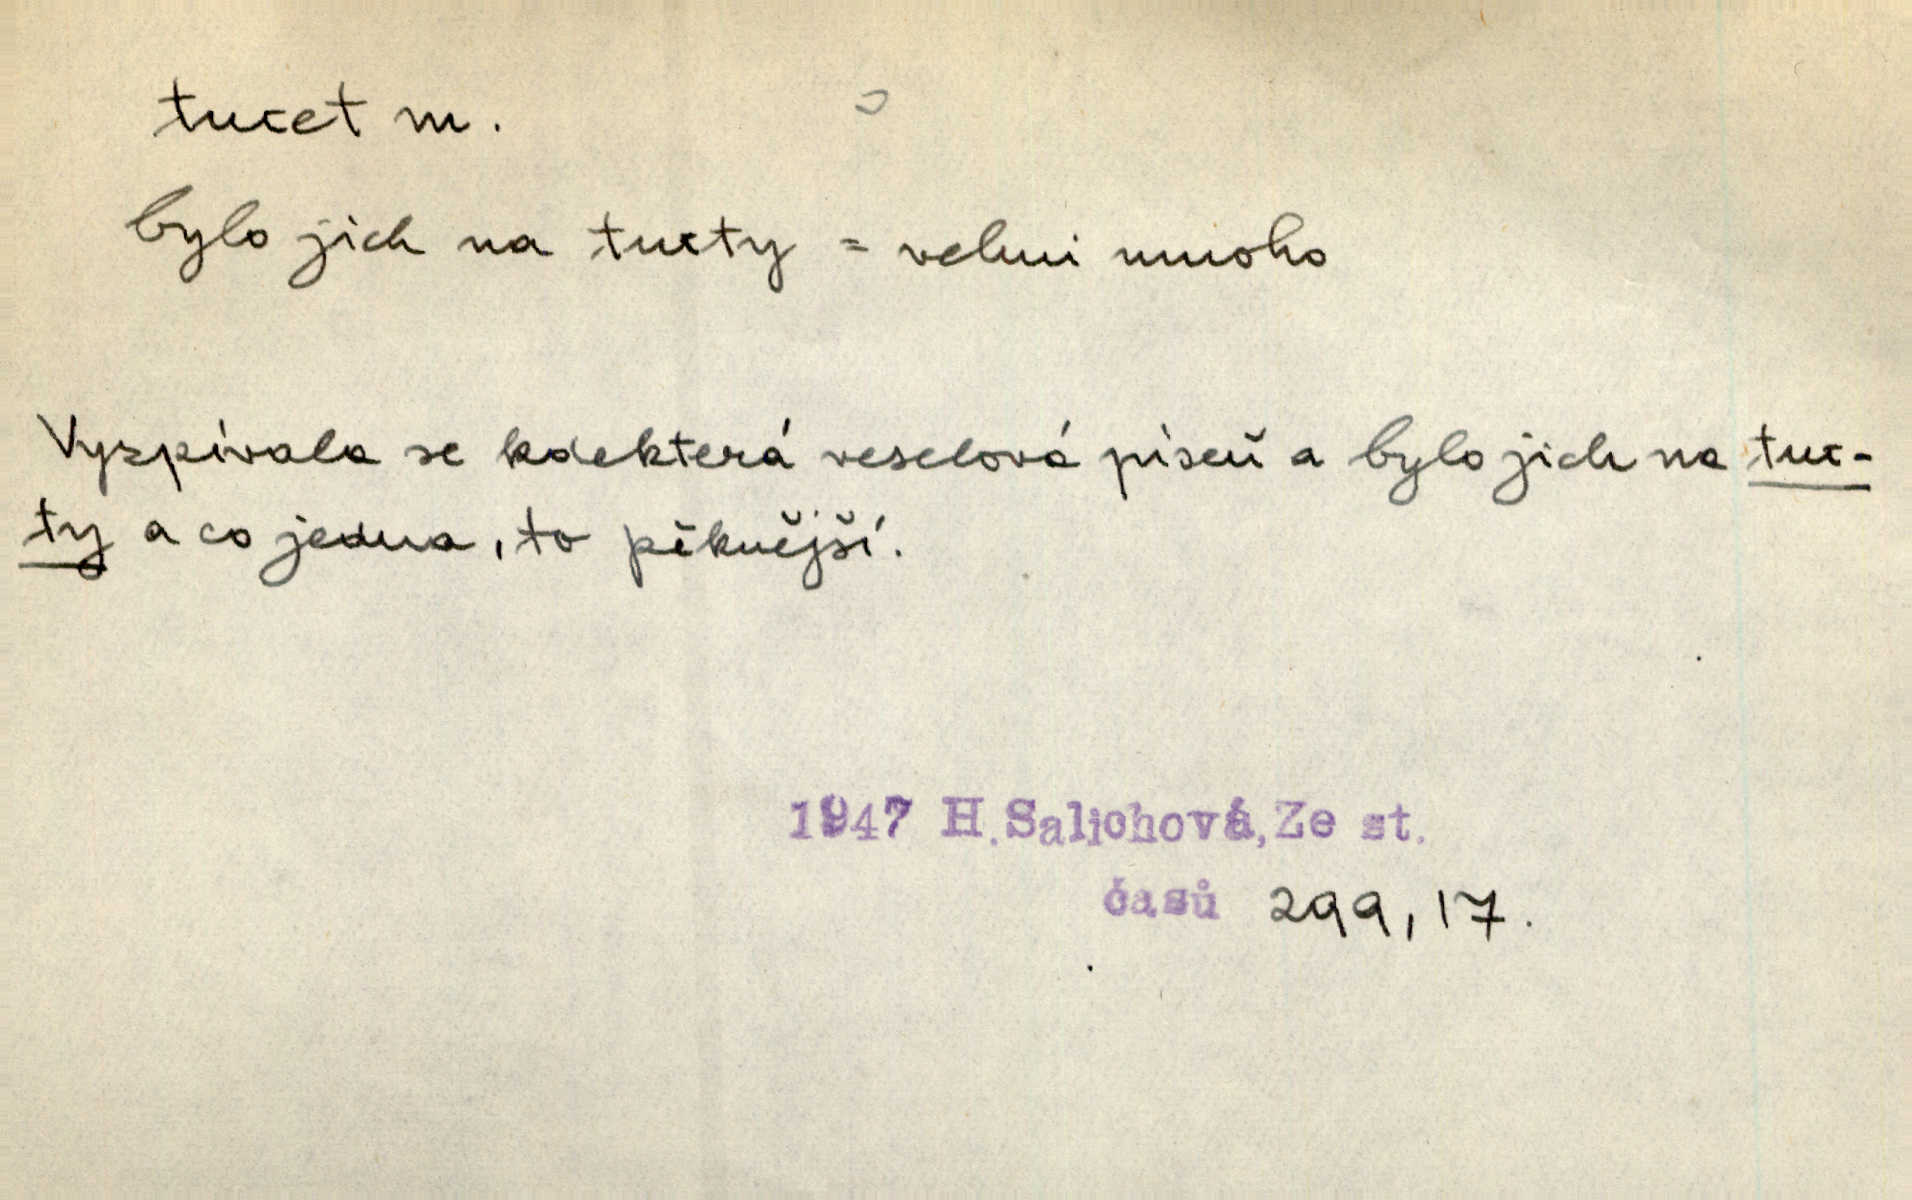 tucet m.
bylo jich na tucty = velmi mnoho
Vyzpívala se kdekterá veselová píseň a bylo jich na tuc-
ty a co jedna, to pěknější.
1947 H. Salichová, Ze st.
časů 299, 17.